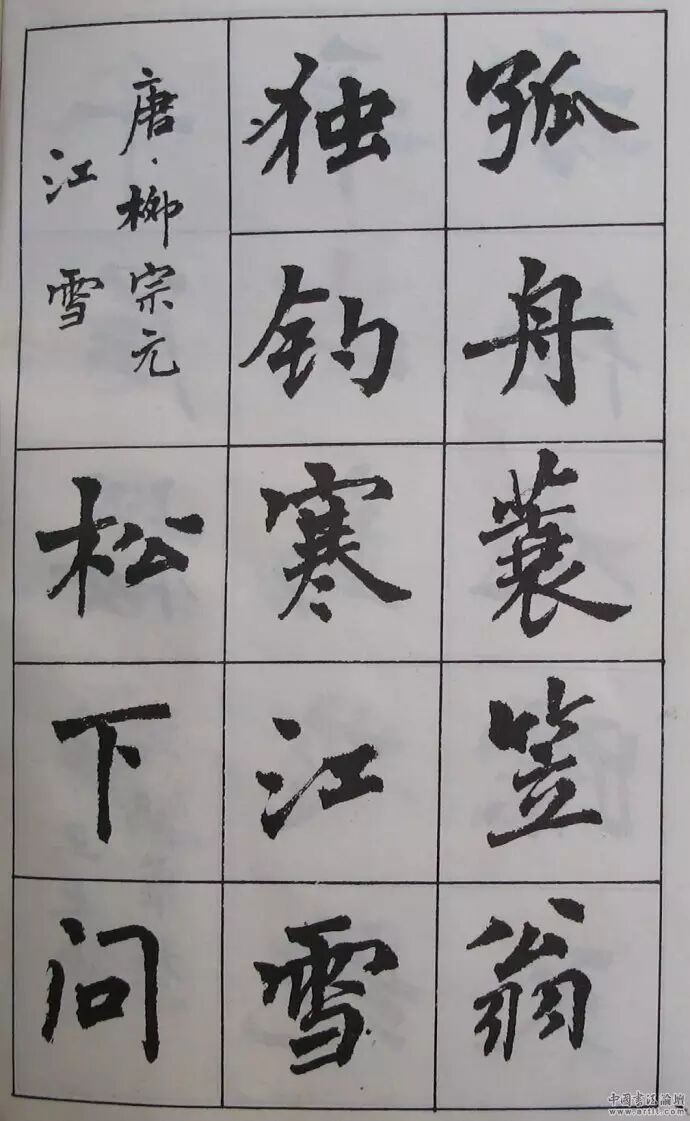 孤舟蓑笠翁
独钓寒江雪
唐、柳宗元
江雪
松下问
中国书法论坛
www.artit.com